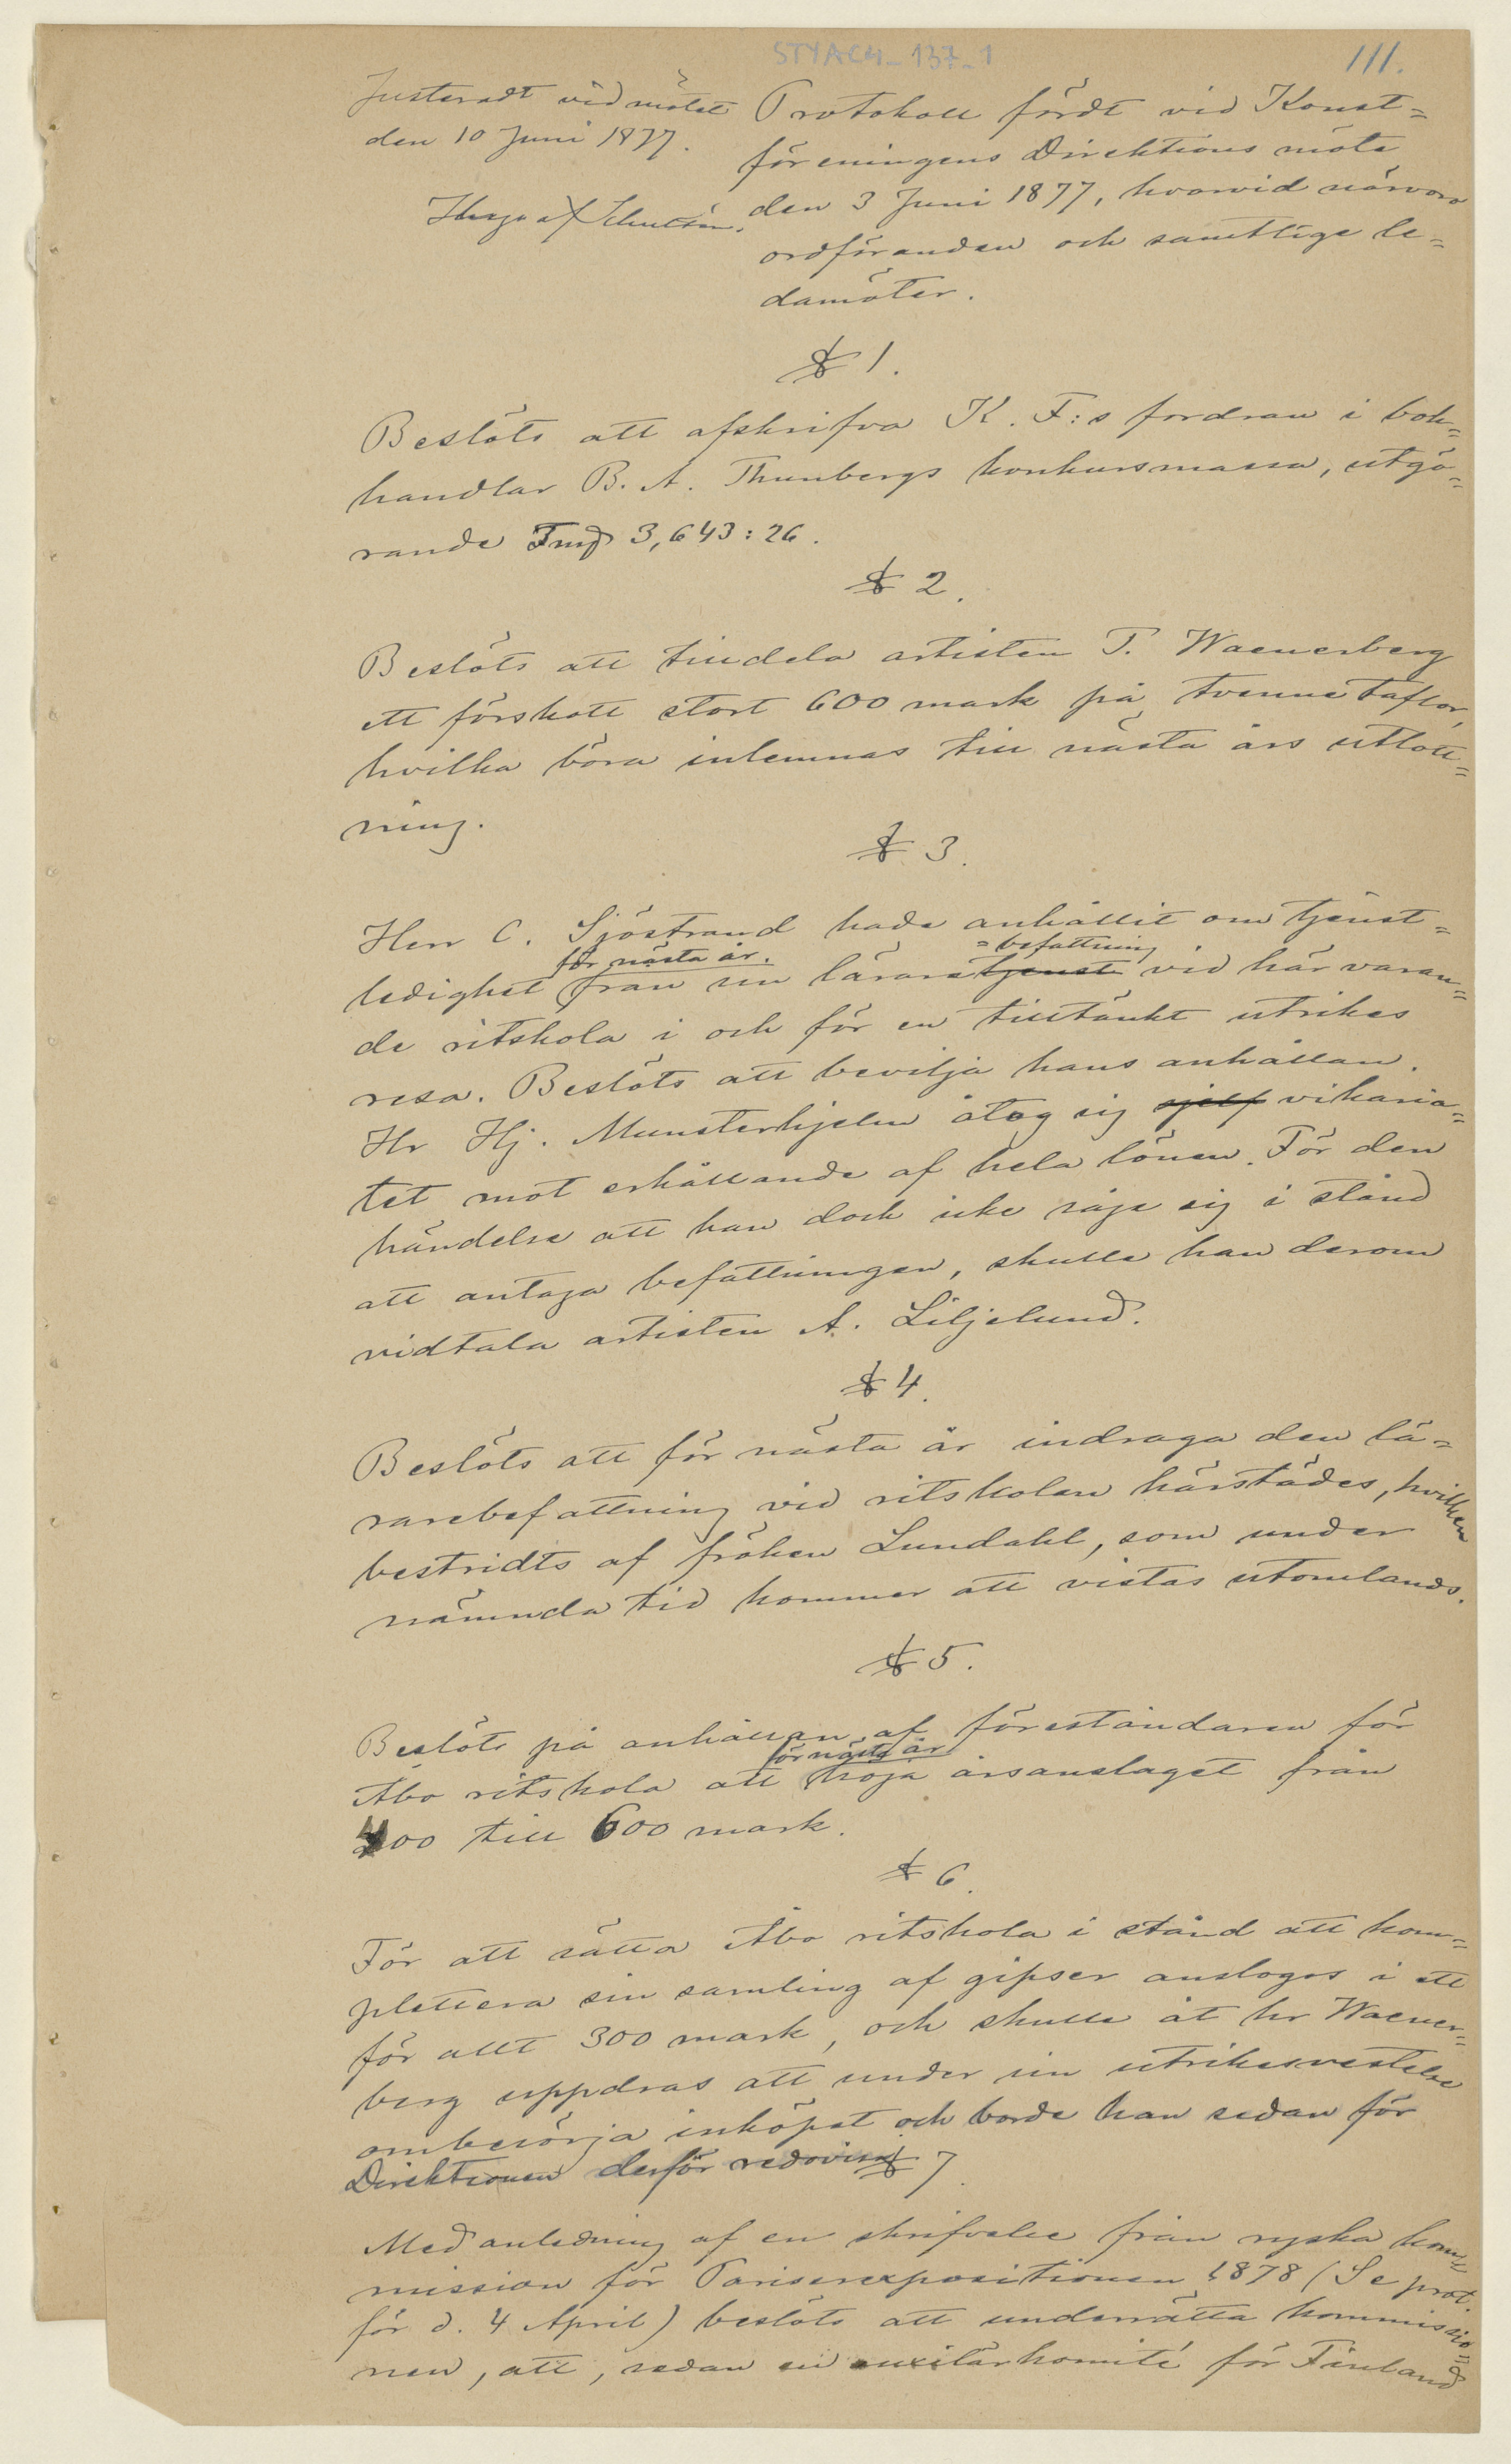 STYACH_137_1
111.
Justeradt vid mötet
den 10 Juni 1877.
Hugo af Schultén.
Protokoll fördt vid Konst=
föreningens Direktions möte
den 3 Juni 1877, hvarvid närvoro
ordföranden och samtlige le=
damöter.
§ 1.
Beslöts att afskrifva K. F:s fordran i bok=
handlar B. A. Thunbergs konkursmassa, utgö=
rande Fmk 3,643:26.
§ 2.
Beslöts att tilldela artisten T. Waenerberg
ett förskott stort 600 mark på tvenne taflor,
hvilka böra inlemnas till nästa års utlott=
ning.
§ 3.
Herr C. Sjöstrand hade anhållit om tjenst=
för nästa år. =befattning
ledighet från sin lärare tjenst vid här varan=
de ritskola i och för en tilltänkt utrikes
resa. Beslöts att bevilja hans anhållan.
Hr Hj. Munsterhjelm åtog sig sjelf vikaria=
tet mot erhållande af hela lönen. För den
händelse att han dock icke såge sig i stånd
att antaga befattningen, skulle han derom
vidtala artisten A. Liljelund.
§ 4.
Beslöts att för nästa år indraga den lä=
rarebefattning vid ritskolan härstädes, hvilken
bestridts af fröken Lundahl, som under
nämnda tid kommer att vistas utomlands.
§ 5.
Beslöts på anhållan af föreståndaren för
för nästa år
Åbo ritskola att höja årsanslaget från
400 till 600 mark.
§ 6.
För att sätta Åbo ritskola i stånd att kom=
plettera sin samling af gipser anslogos i ett
för allt 300 mark, och skulle åt hr Waener=
berg uppdras att under sin utrikesvistelse
ombesörja inköpet och borde han sedan för
Direktionen derför redovisa
§ 7.
Med anledning af en skrifvelse från ryska kom=
mission för Pariserexpositionen 1878 (Se prot.
för d. 4 April) beslöts att underrätta kommissio=
nen, att, sedan en auxilärkomité för Finland